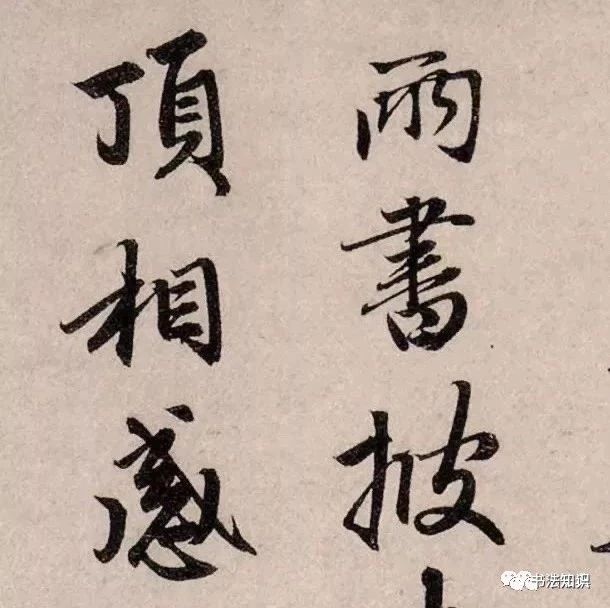 兩書披
頂相感
书法知识